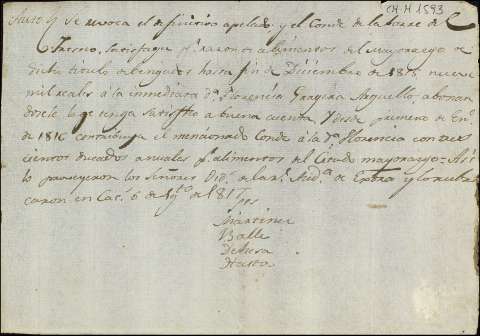 CH-H 1593
Auto q. Se revoca el definitivo apelado, y el Conde de la torre de el
Fresno, satisfaga p.r razon de alimentos del Mayorazgo de
dicho titulo debengados hasta fin de Diciembre de 1815 nueve
mil reales á la inmediata D.a Florencia Gragera Arguello, abonan
dosele lo q.e tenga satisfho a buena cuenta, y desde primero de En.o
de 1816 contribuya el mencionado Conde á la D.a Florencia con tres
cientos ducados anuales p.r alimentos del Citado mayorazgo. Asi
lo proveyeron los señores Oid.s de la R.l Aud.a de Extra y lo rubri
caron en Cac.s 6 de 1817
Martinez
Balle
Dehesa
Hasta